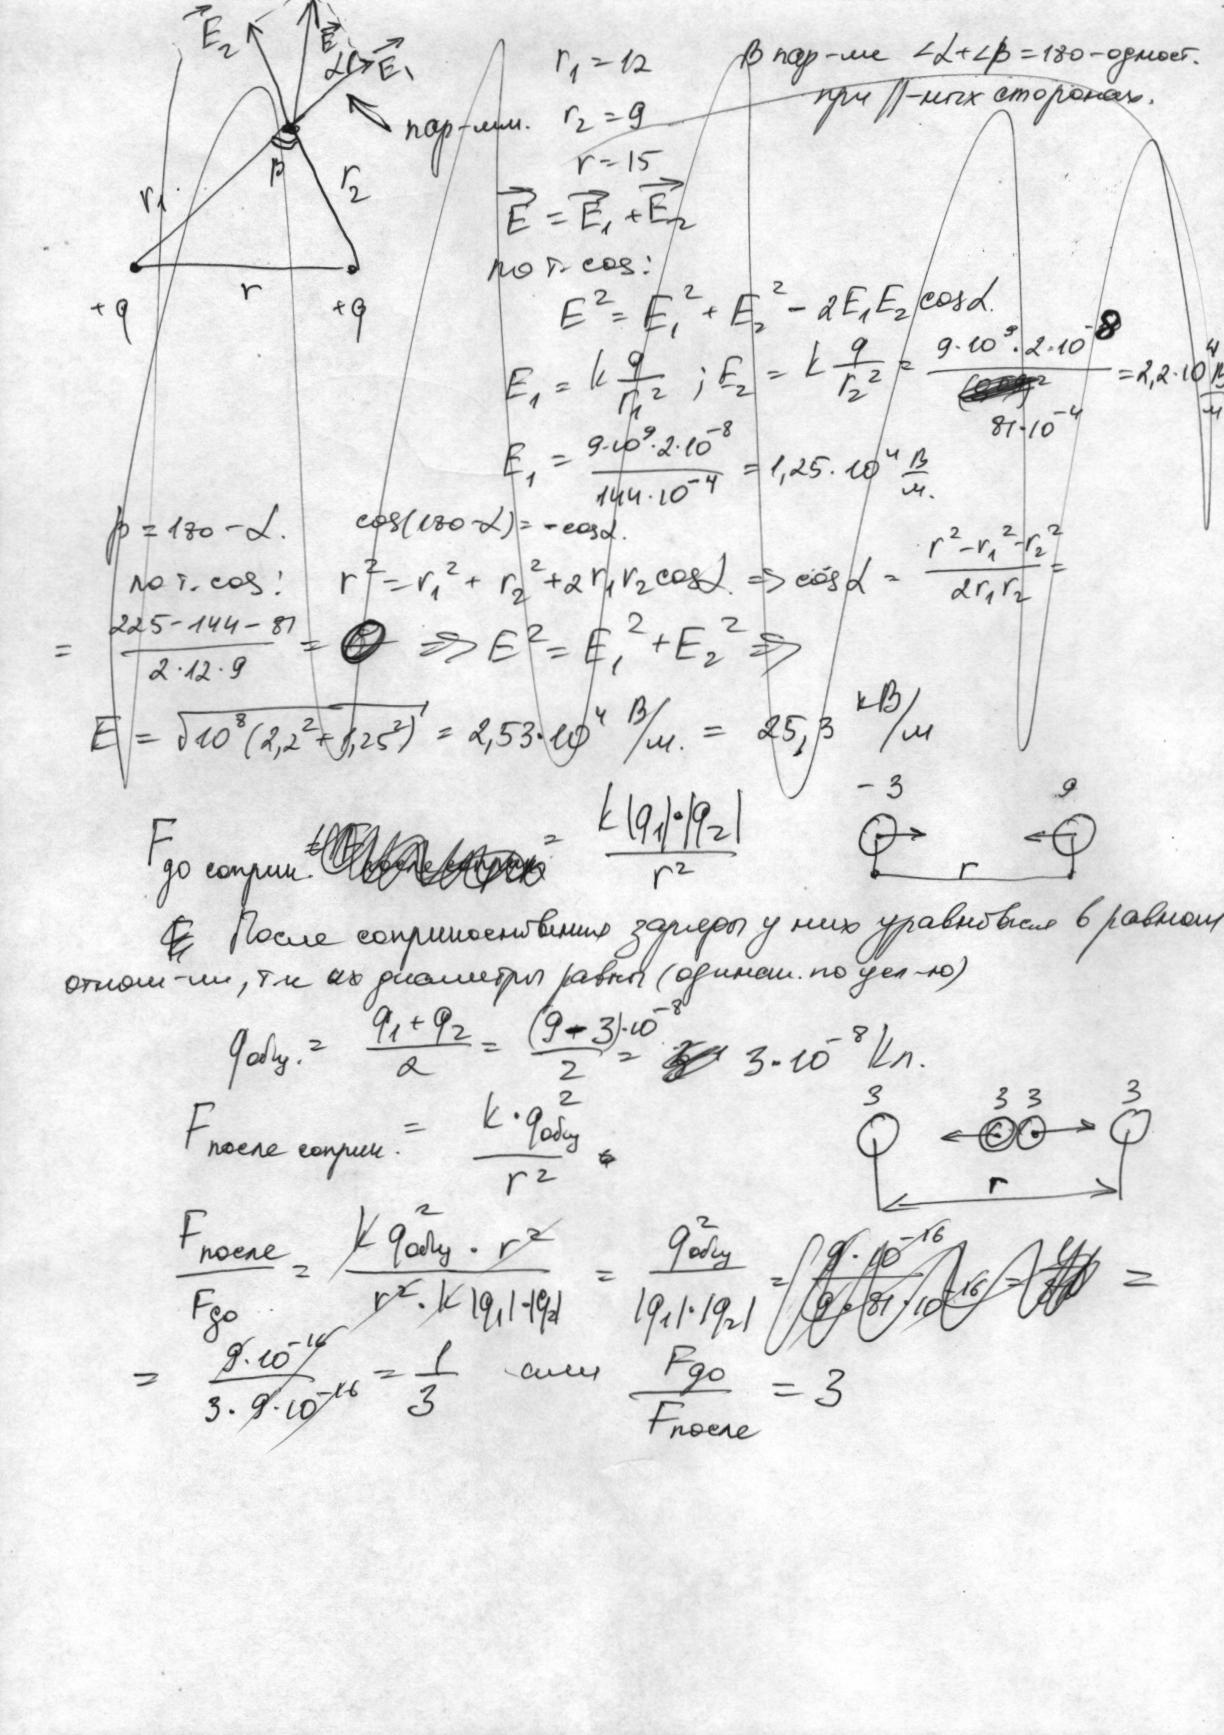 E⃗₂ E⃗ α E⃗₁
r₁ = 12
В пар-ме ∠α+∠β = 180 - одност.
при ||-ных сторонах.
пар-мм.
r₂ = 9
β
r = 15
r₁ r₂
E⃗ = E⃗₁ + E⃗₂
по т. cos:
+q r +q
E² = E₁² + E₂² - 2E₁E₂ cosα.
E₁ = k q/r₁² ; E₂ = k q/r₂² = 9·10⁹·2·10⁻⁸/81·10⁻⁴ = 2,2·10⁴ В/м
E₁ = 9·10⁹·2·10⁻⁸/144·10⁻⁴ = 1,25·10⁴ В/м.
β = 180 - α. cos(180-α) = -cosα.
по т. cos: r² = r₁² + r₂² + 2r₁r₂ cosα => cosα = r²-r₁²-r₂²/2r₁r₂ =
= 225-144-81/2·12·9 = 0 => E² = E₁² + E₂² =>
E = √10⁸(2,2²+1,25²) = 2,53·10⁴ В/м. = 25,3 кВ/м
- 3 9
F до соприк. = k|q₁|·|q₂|/r²
r
После соприкосновения заряды у них уравновесятся в равном
отнош-ии, т.к их диаметры равны (одинак. по усл-ю)
q общ. = q₁+q₂/2 = (9-3)·10⁻⁸/2 = 3·10⁻⁸ Кл.
3 3 3 3
F после соприк. = k·q общ²/r²
r
F после/F до = k q общ² · r²/r² · k |q₁|·|q₂| = q общ²/|q₁|·|q₂| =
= 9·10⁻¹⁶/3·9·10⁻¹⁶ = 1/3 или F до/F после = 3